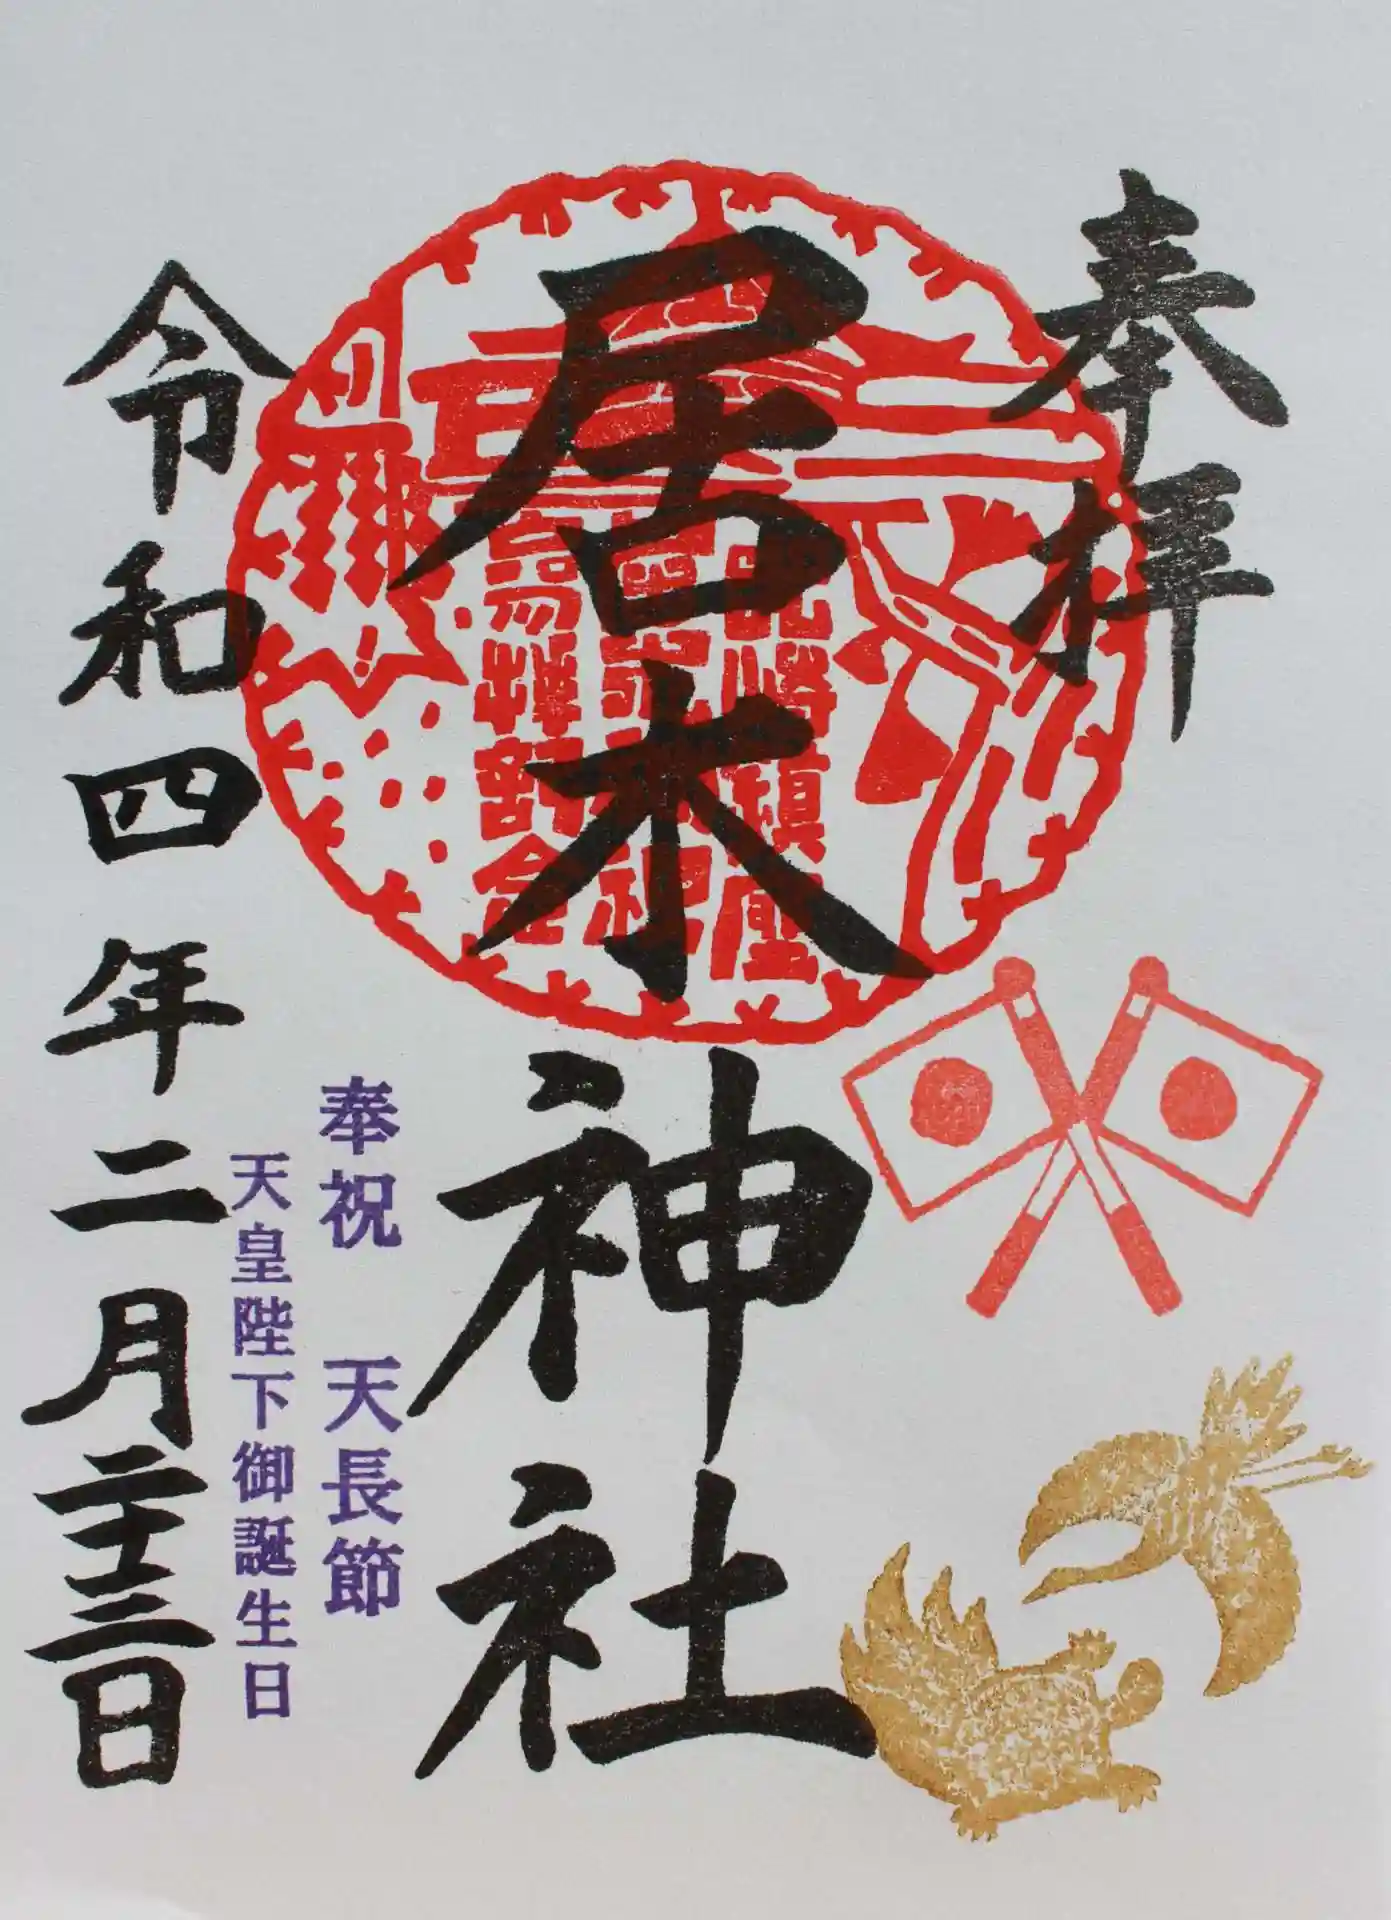 奉拝
居木神社
奉祝 天長節
天皇陛下御誕生日
令和四年二月二十三日